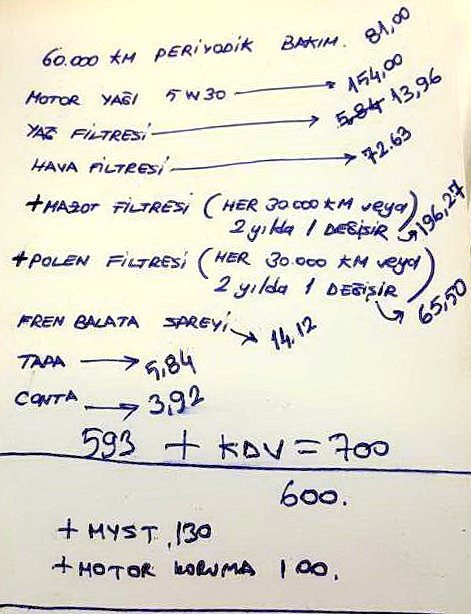 60.000 KM PERİYODİK BAKIM. 81,00
MOTOR YAĞI 5W30 → 154,00
YAĞ FİLTRESİ → 5,84 13,96
HAVA FİLTRESİ → 72.63
+MAZOT FİLTRESİ (HER 30000 KM veya
2 yılda 1 DEĞİŞİR) → 196,27
+POLEN FİLTRESİ (HER 30.000 KM veya
2 yılda 1 DEĞİŞİR) → 65,50
FREN BALATA SPREYİ → 14,12
TAPA → 5,84
CONTA → 3,92
593 + KDV = 700
600.
+ MYST .130
+ MOTOR KORUMA 100.